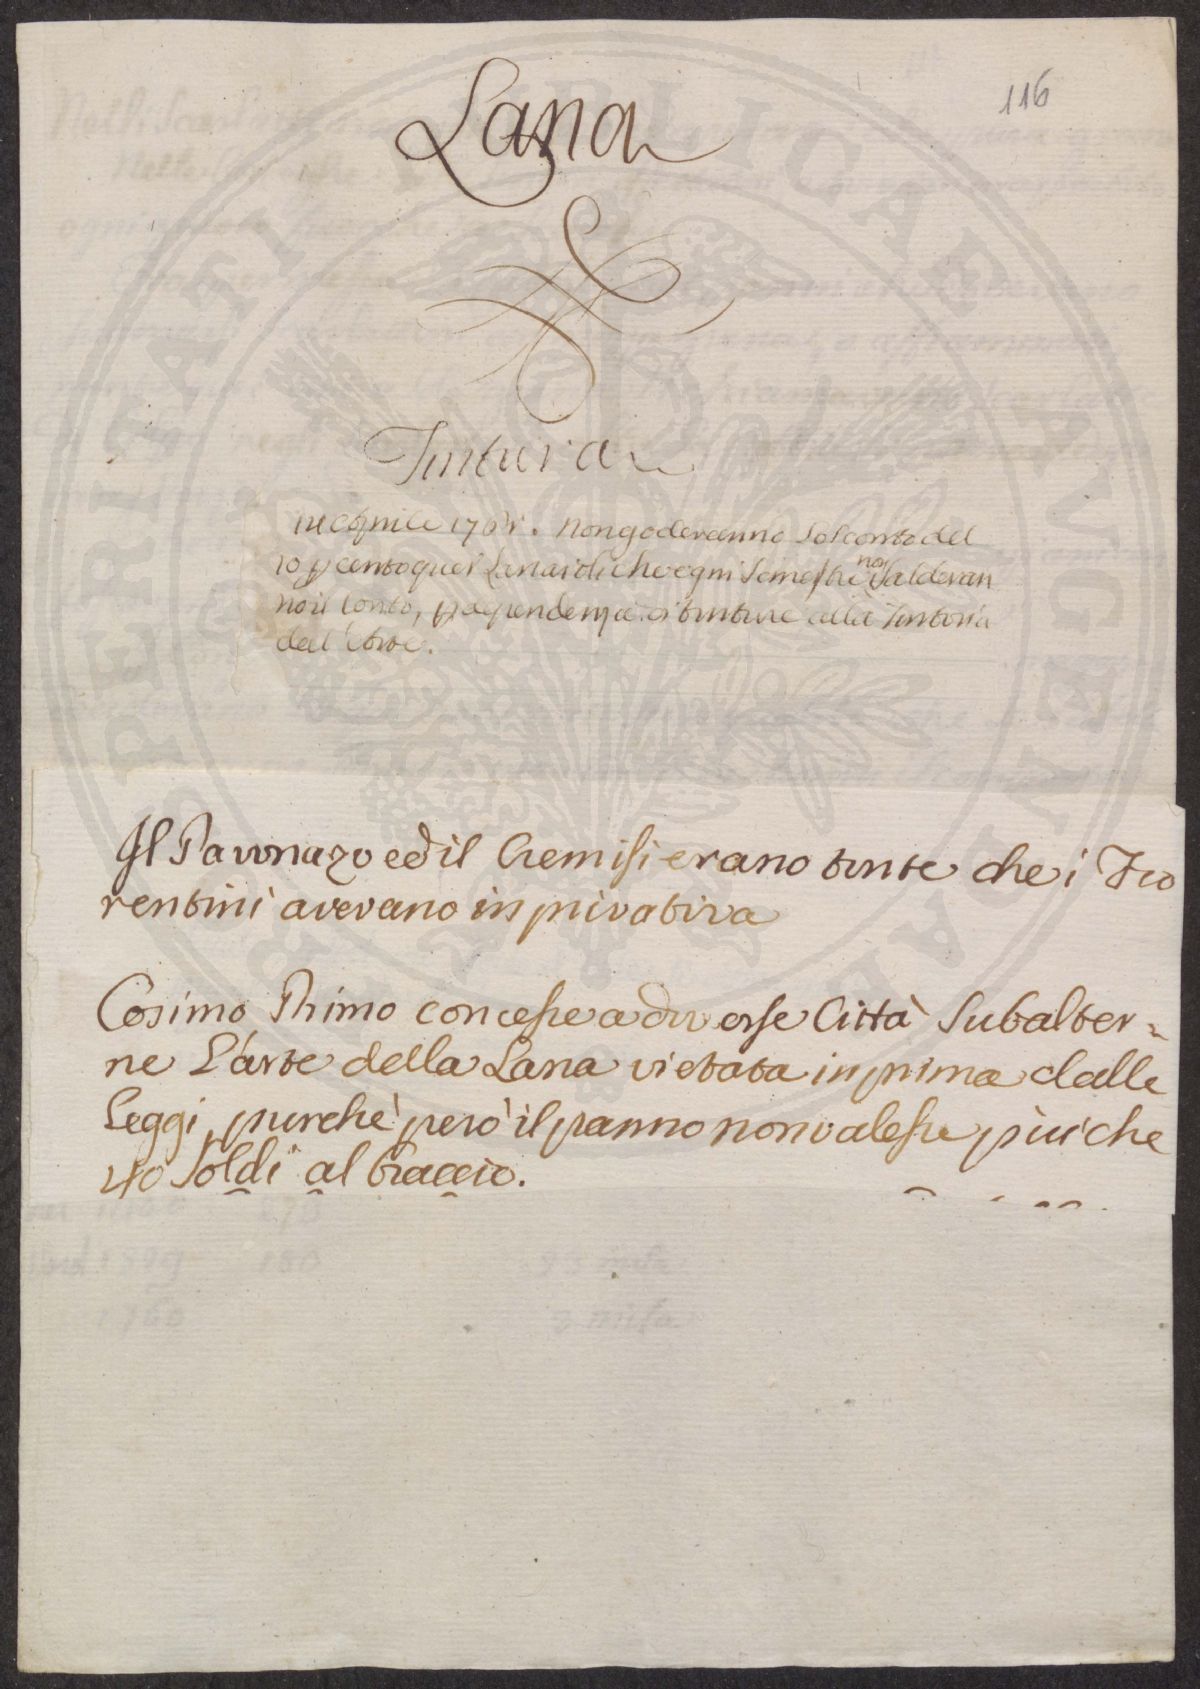 116
Lana
Tintura
12 Aprile 1761. Non goderanno lo sconto del
10 p cento quei Lanaioli che ogni Semestre non Salderan
no il Conto, p dependenza di tinture alla Tintoria
dell'Arte.
Il Pavonazo ed il Cremisi erano tinte che i Fio
rentini avevano in privativa
Cosimo Primo concesse a diverse Città Subalter-
ne L'arte della Lana vietata in prima dalle
Leggi, purchè però il panno non valesse più che
40 Soldi al braccio.